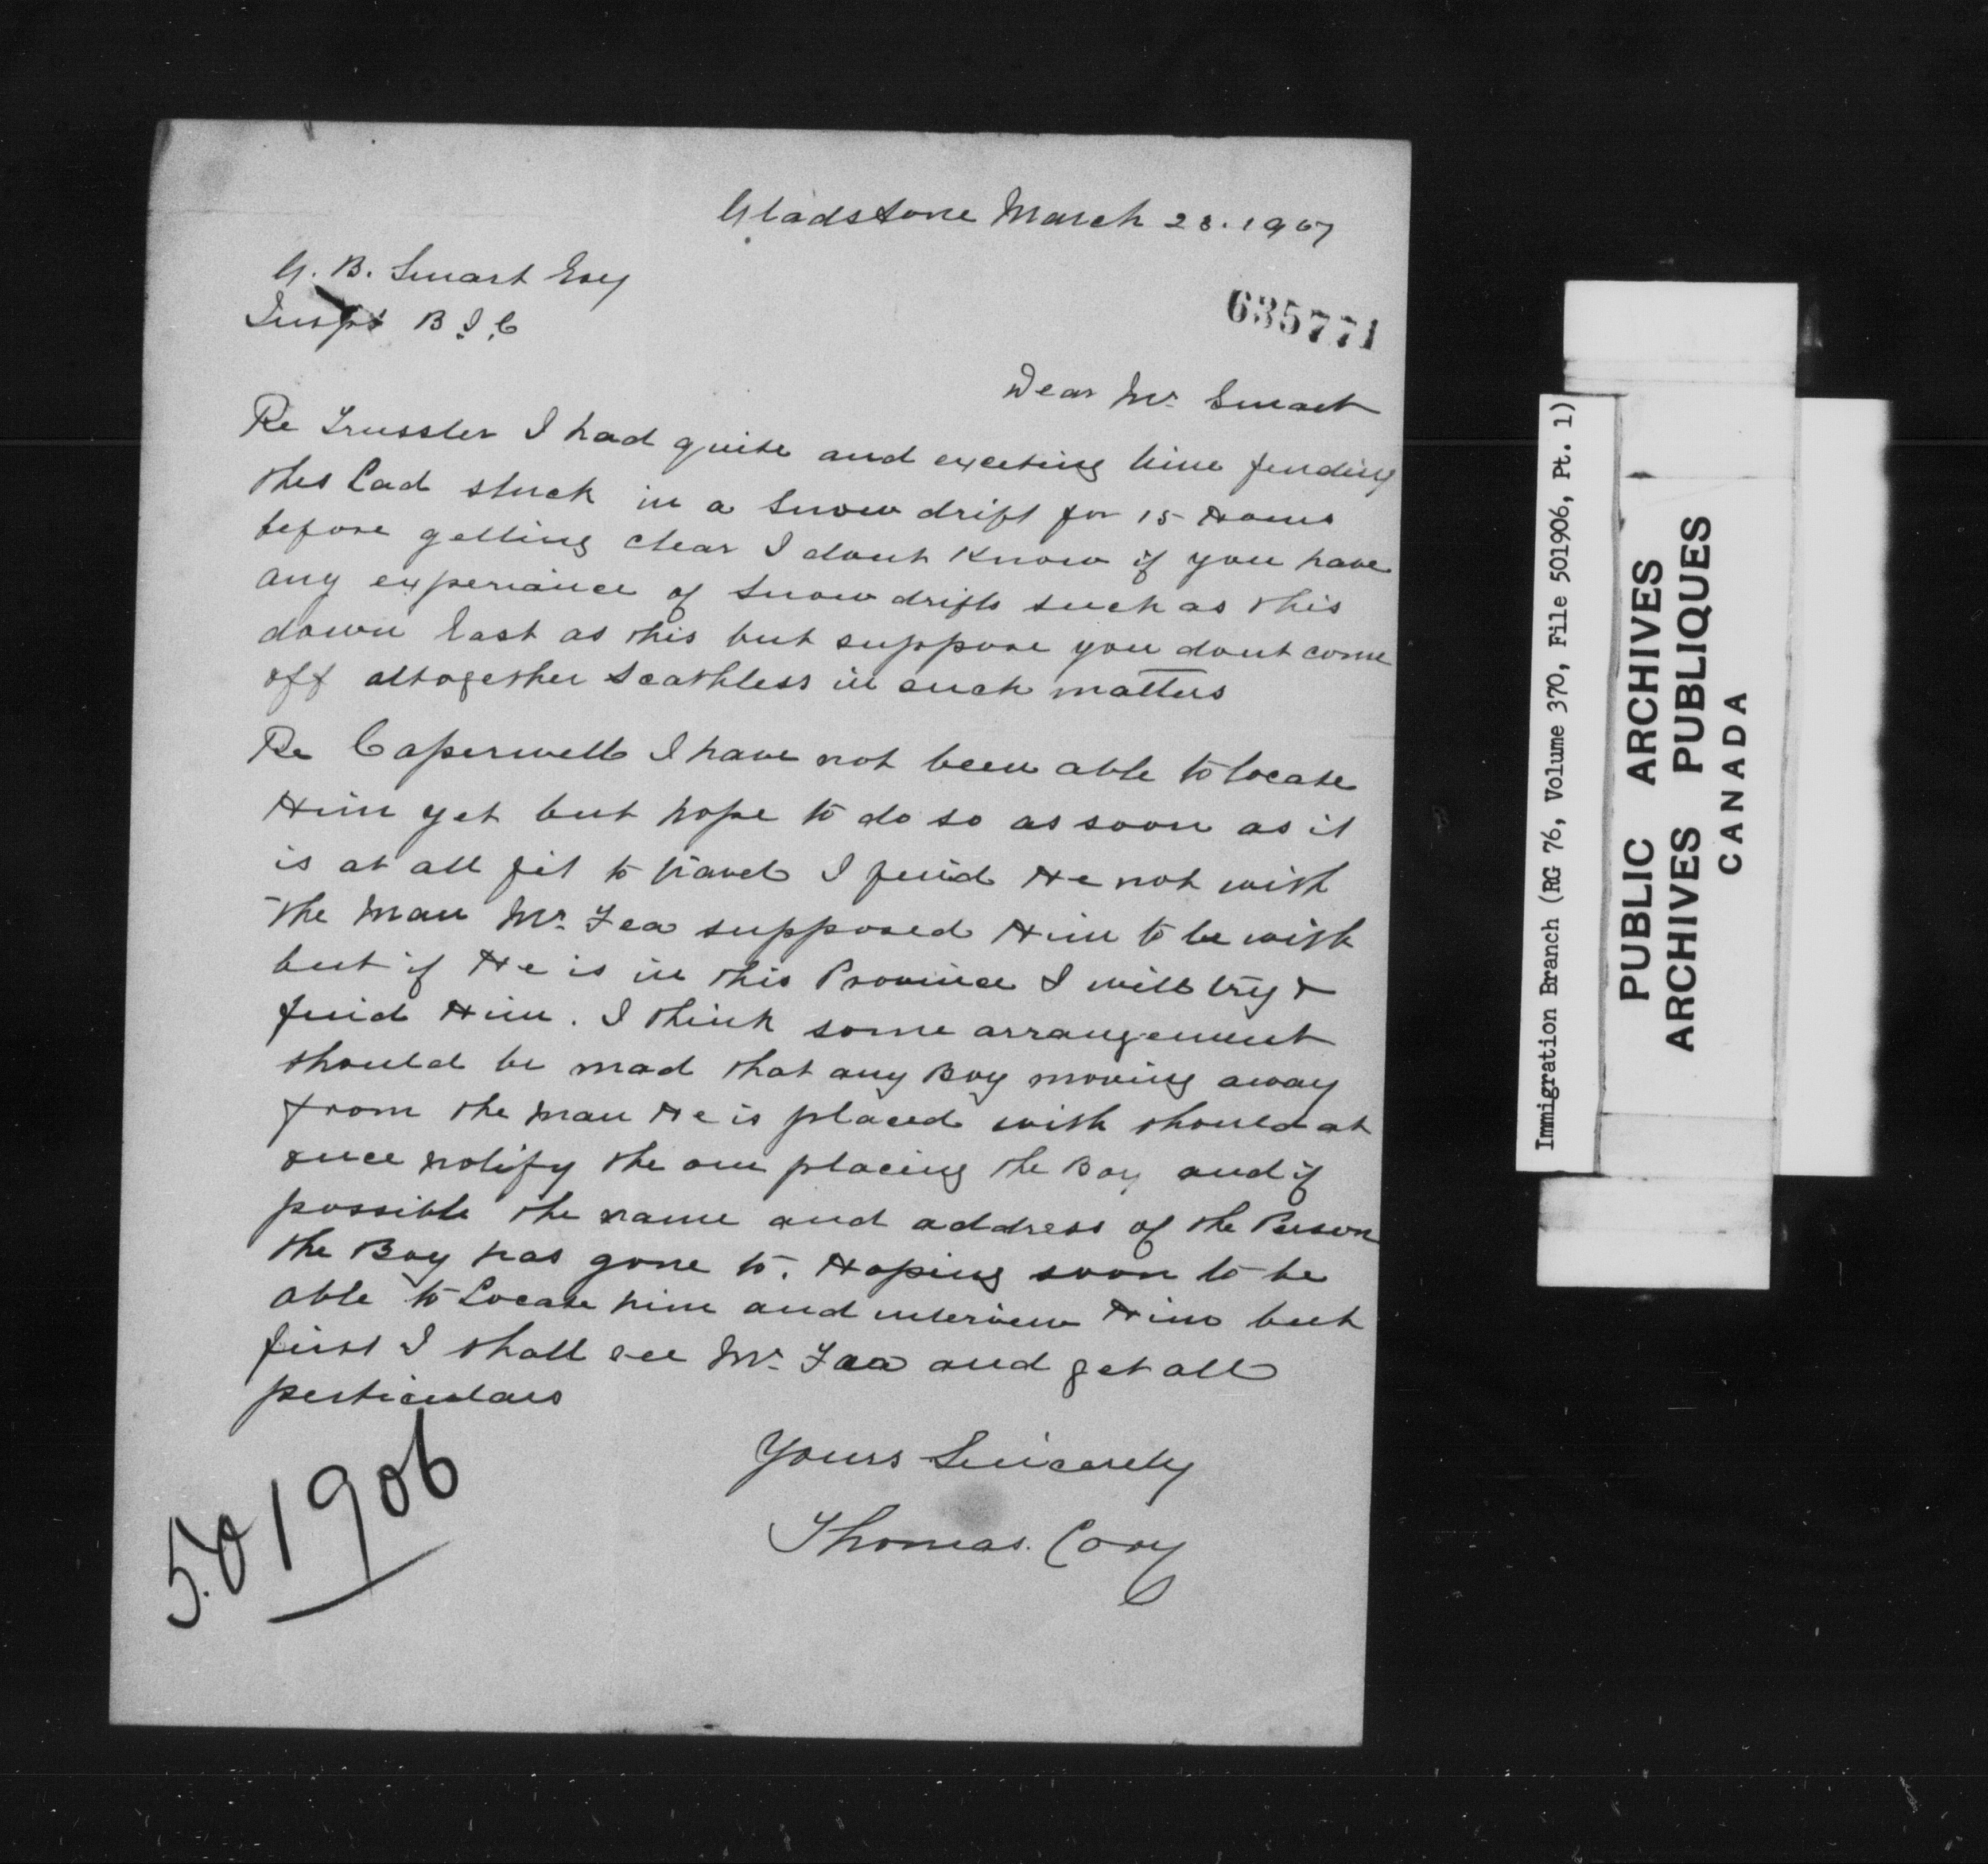 Gladstone March 28. 1907
G. B. Smart Esq
Inspt B. I. C
635771
Dear Mr. Smart
Re Trussler I had quite and exceting time finding
this Lad stuck in a Snow drift for 15 Hours
before getting clear I dont Know if you have
any experiance of Snow drifts such as this
down East as this but suppose you dont come
off altogether Scathless in such matters
Re Caperwell I have not been able to locate
Him yet but hope to do so as soon as it
is at all fit to travel I find He not with
the Man Mr. Fea supposed Him to be with
but if He is in this Province I will try &
find Him. I think some arrangement
should be mad that any Boy moving away
from the Man He is placed with should at
once notify the one placing the Boy and if
possible the name and address of the Person
the Boy has gone to. Hoping soon to be
able to Locate him and interview Him but
first I shall see Mr. Fea and get all
perticulars
Yours Sincerely
Thomas. Cory
501906
Immigration Branch (RG 76, Volume 370, File 501906, Pt. 1)
PUBLIC ARCHIVES
ARCHIVES PUBLIQUES
CANADA